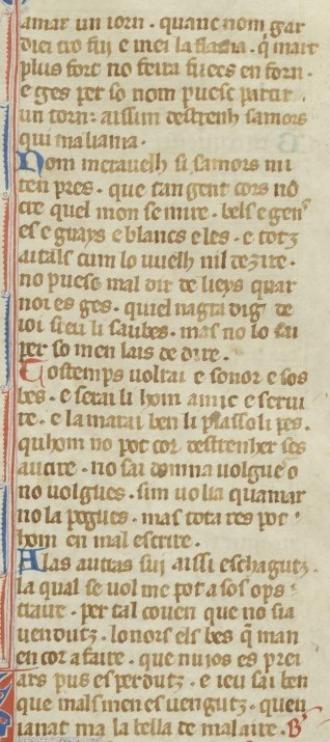 amar un iorn · quant nom gar
diei tro fui e miei la flama · q̄ mart
plus fort no feira fuecs en forn ·
e ges per so nom puesc partir ·
un torn: aissim destrenh samors
qui maliama ·
Nom meravelh si samors mi
ten pres · que tan gent cors nō
cre quel mon se mire · bels e gens
es e guays e blancs e les · e totz
aitals cum lo vuelh nil dezire ·
no puesc mal dir de lieys quar
noi es ges · quiel nagra dig de
ioi sieu li saubes · mas no lo sai
per so men lais de dire ·
Tostemps volrai e sonor e sos
bes · e serai li hom amic e servi
re · e lamarai ben li plassoli pes ·
quhom no pot cor destrenher ses
aucire · no sai domna volgues o
no volgues · sim volia quamar
no la pogues · mas tota res pot
hom en mal escrire ·
A las autras sui aissi eschagutz ·
la qual se vol me pot a sos ops
traire · per tal coven que no sia
vendutz · lonors els bes q̄ man
en cor a faire · que nuios es prei
ars pus es perdutz · e ieu sai ben
que mals men es vengutz · quen
ianat ma la bella de mal aire · B